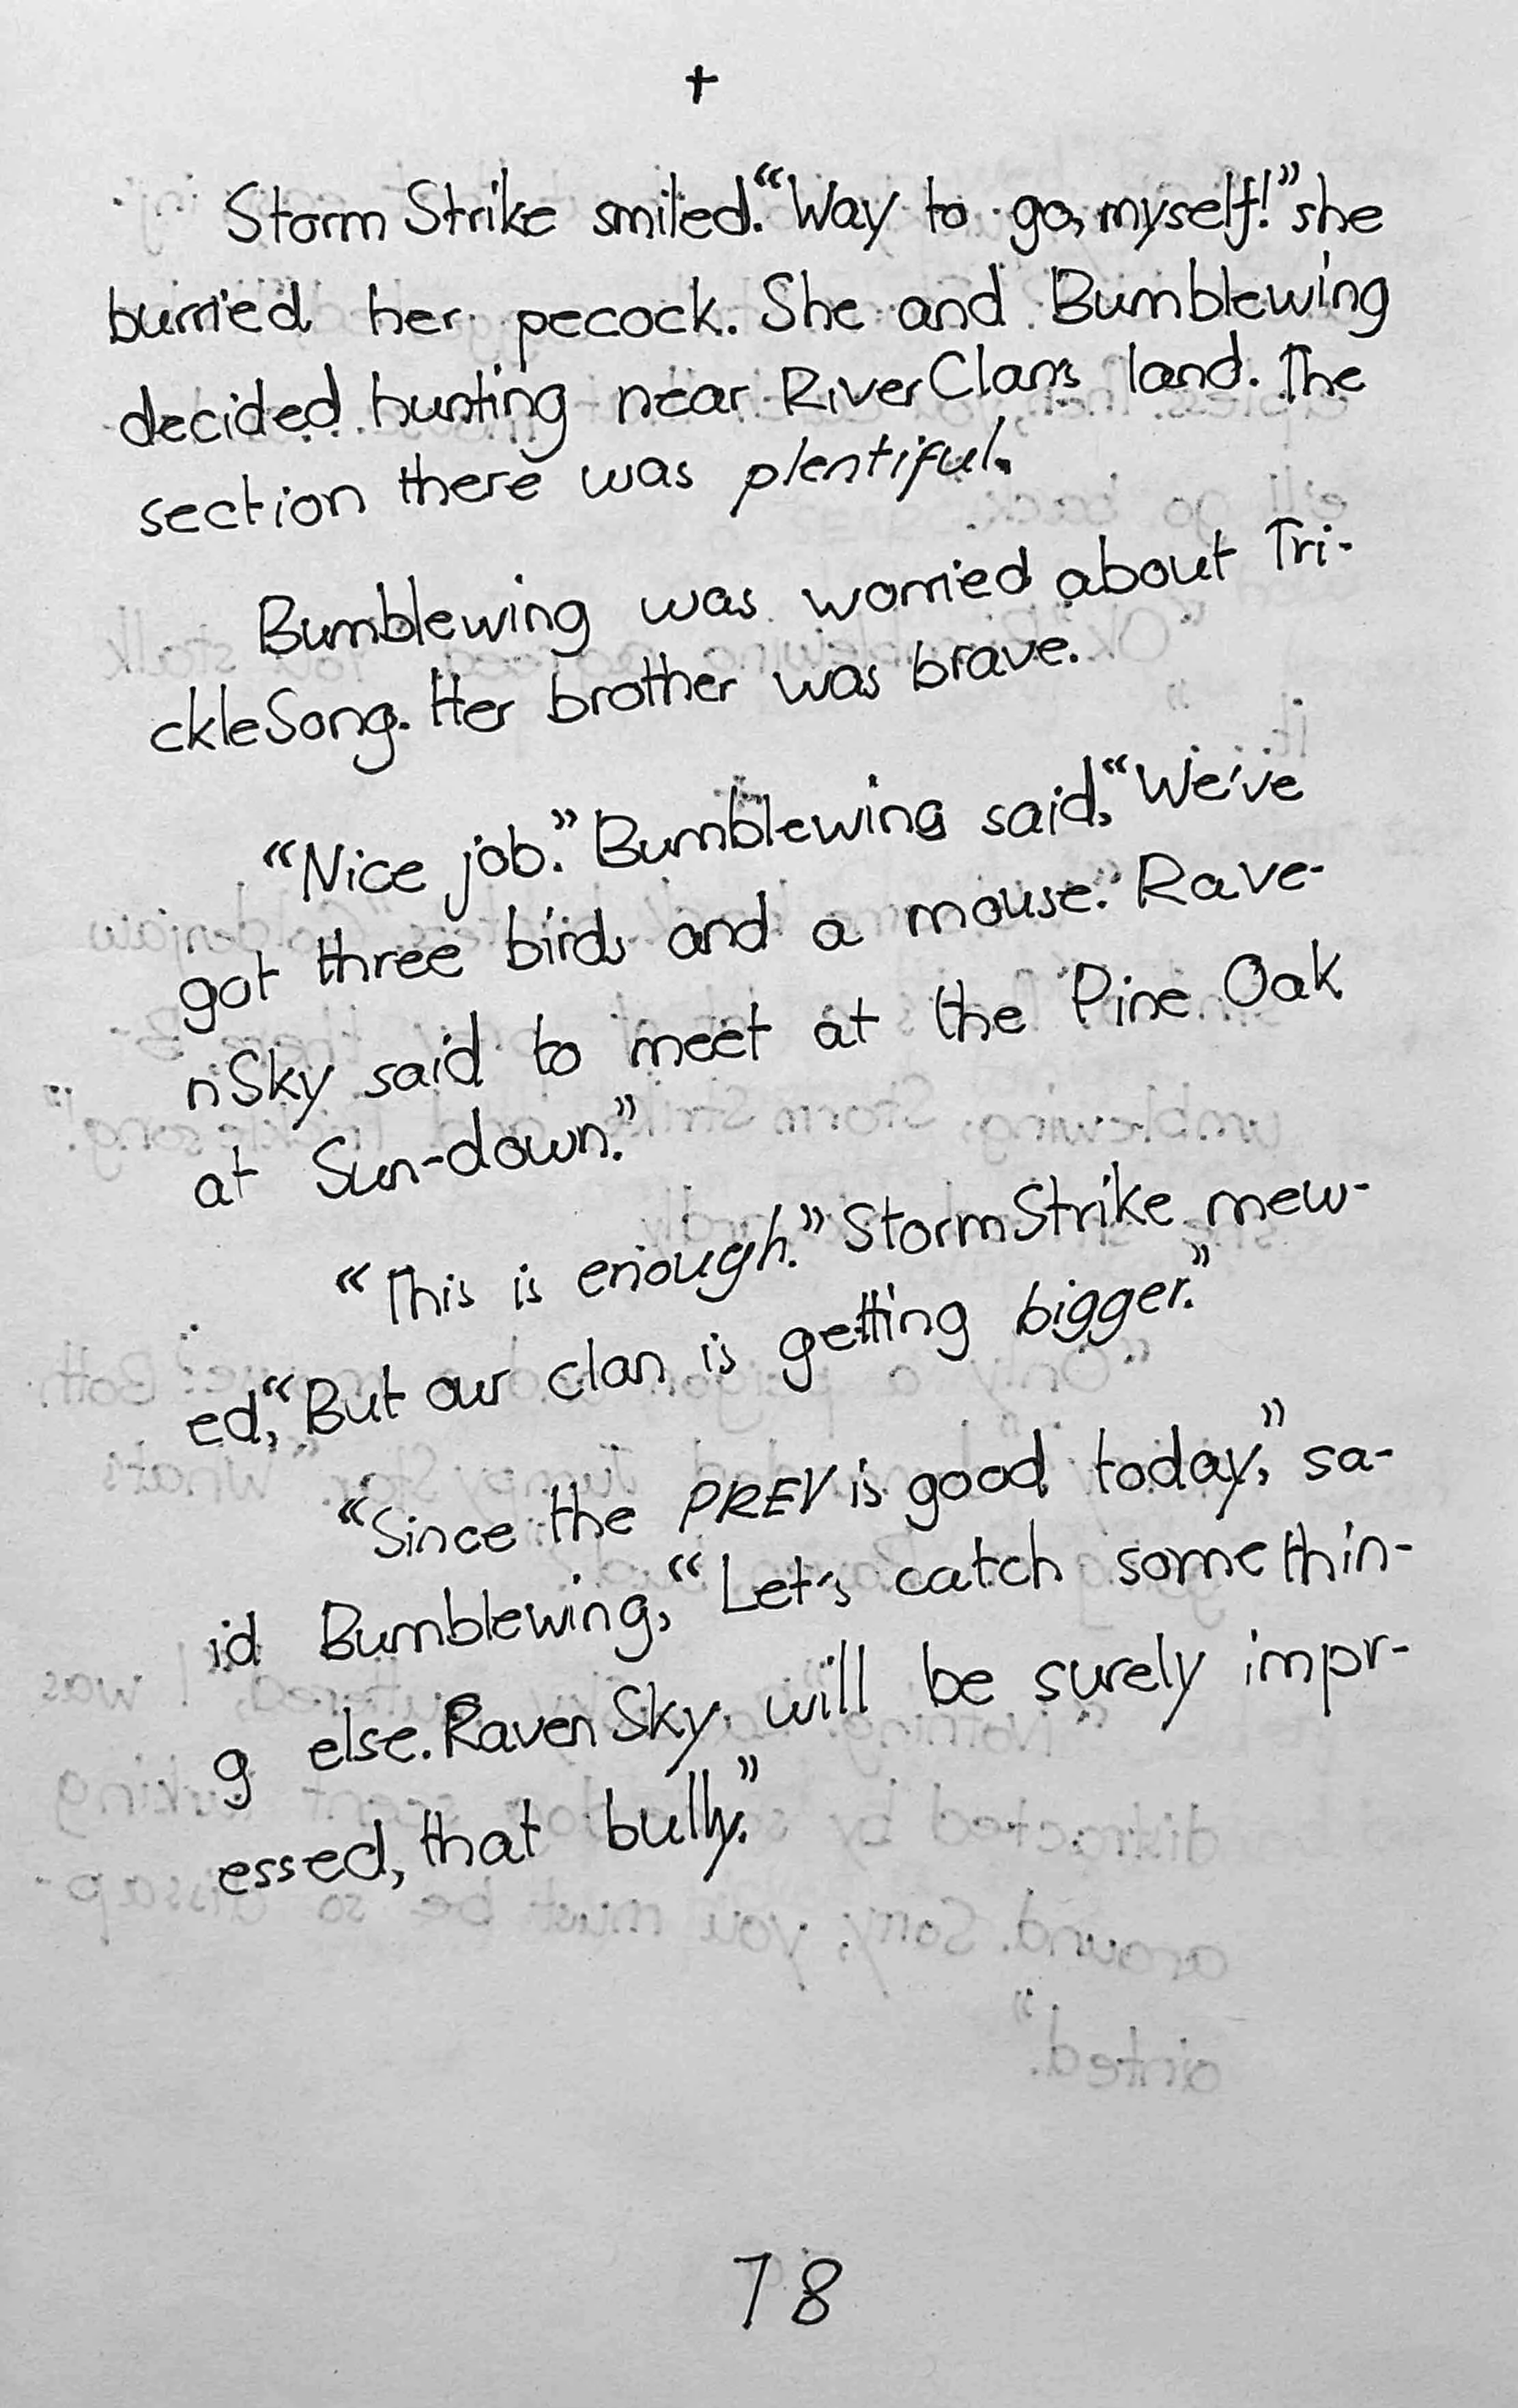 †
StormStrike smiled. “Way to go, myself!” she
burried her pecock. She and Bumblewing
decided hunting near RiverClans land. The
section there was plentiful.
Bumblewing was worried about Tri-
ckleSong. Her brother was brave.
“Nice job.” Bumblewing said, “We've
got three birds and a mouse.” Rave-
nSky said to meet at the Pine Oak
at Sun-down.”
“This is enough.” StormStrike mew-
ed, “But our clan is getting bigger.”
“Since the PREY is good today,” sa-
id Bumblewing, “Let's catch somethin-
g else. RavenSky will be surely impr-
essed, that bully.”
78